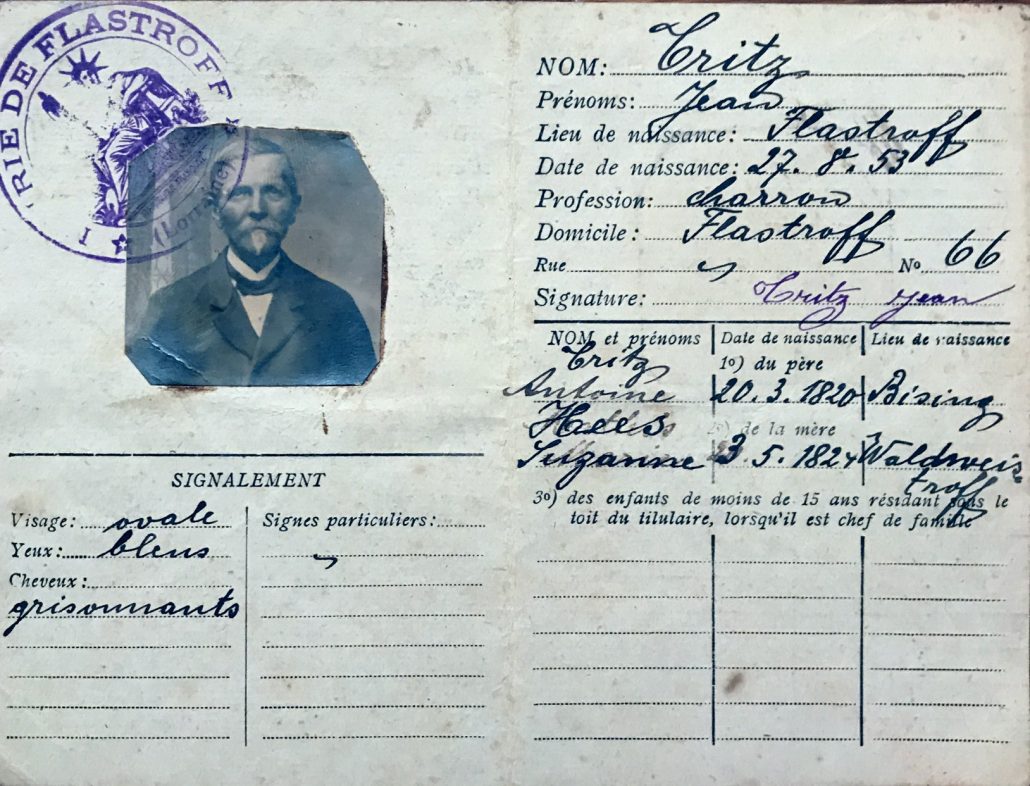 RIE DE FLASTROFF
(Lorraine)
SIGNALEMENT
Visage: ovale
Yeux: bleus
Cheveux:
grisonnants
Signes particuliers:
NOM: Tritz
Prénoms: Jean
Lieu de naissance: Flastroff
Date de naissance: 27.8.53
Profession: charron
Domicile: Flastroff
Rue No 66
Signature: Tritz Jean
NOM et prénoms Date de naissance Lieu de naissance
1o) du père
Tritz
Antoine 20.3.1820 Bising
Hees 2o) de la mère
Suzanne 3 5. 1824 Waldweis-
troff
3o) des enfants de moins de 15 ans résidant sous le
toit du titulaire, lorsqu'il est chef de famille